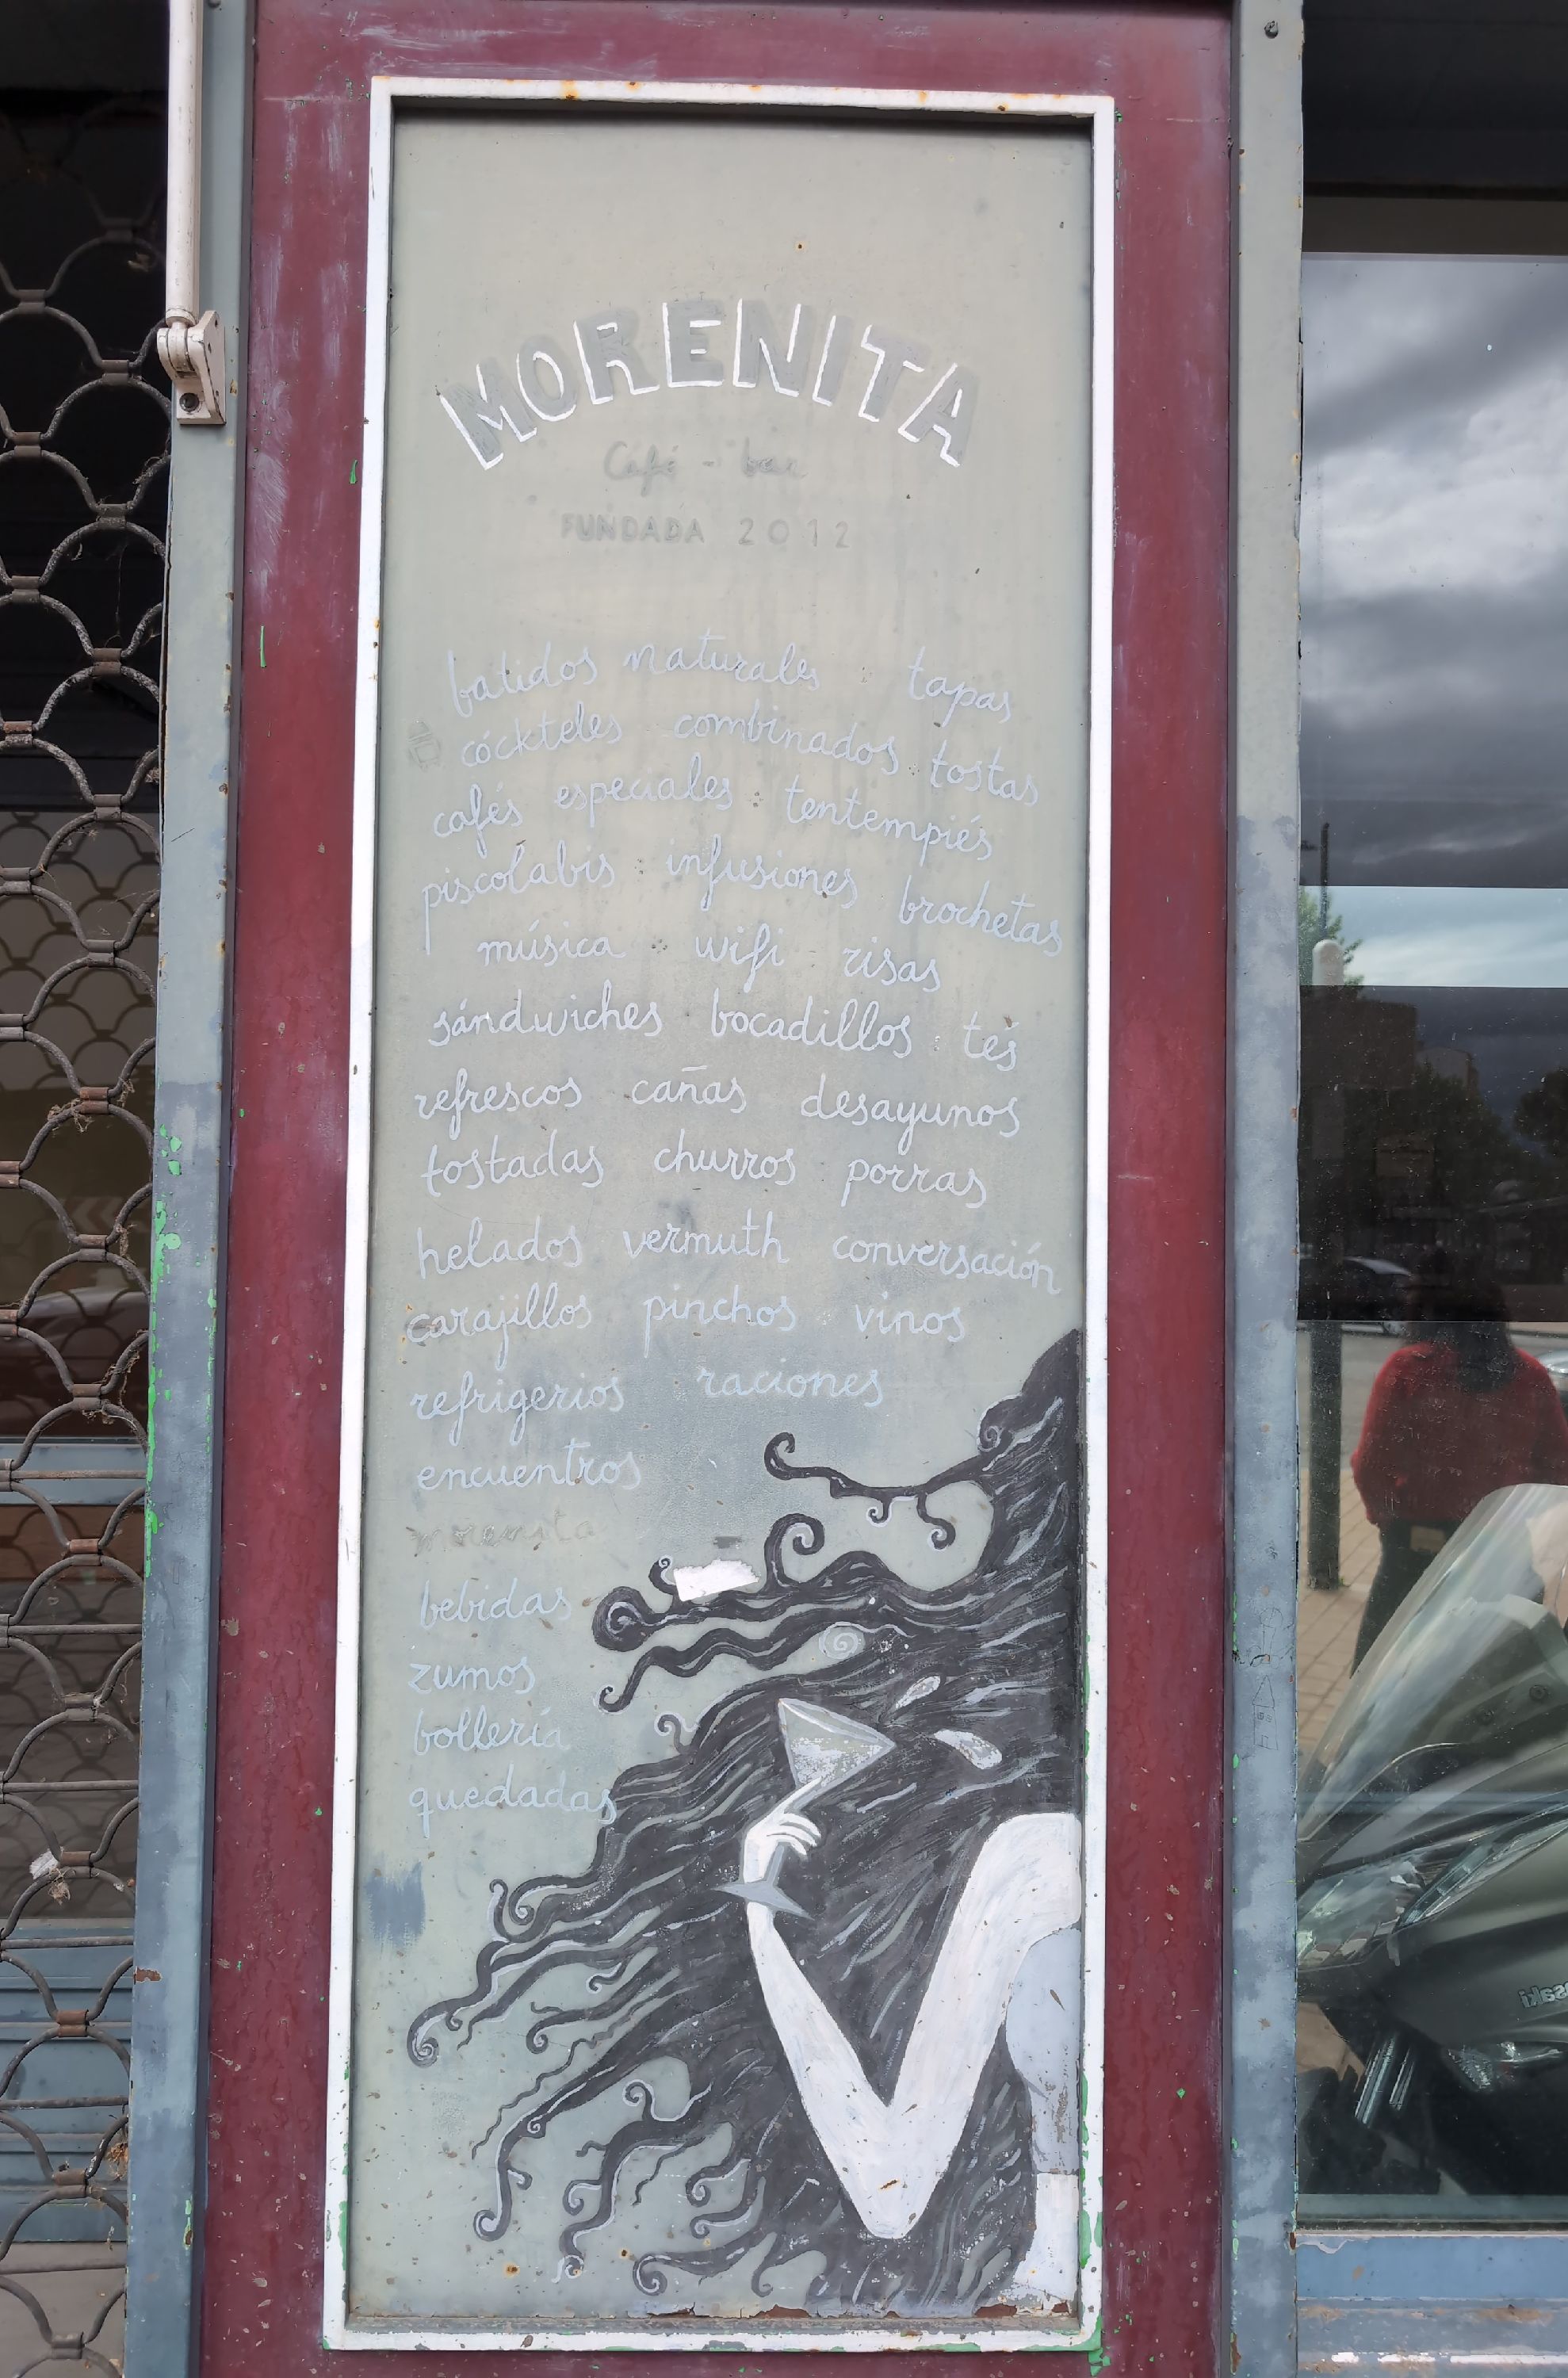 MORENITA
Café - bar
FUNDADA 2012
batidos naturales tapas
cóckteles combinados tostas
cafés especiales tentempiés
piscolabis infusiones brochetas
música wifi risas
sándwiches bocadillos tés
refrescos cañas desayunos
tostadas churros porras
helados vermuth conversación
carajillos pinchos vinos
refrigerios raciones
encuentros
morenita
bebidas
zumos
bollería
quedadas